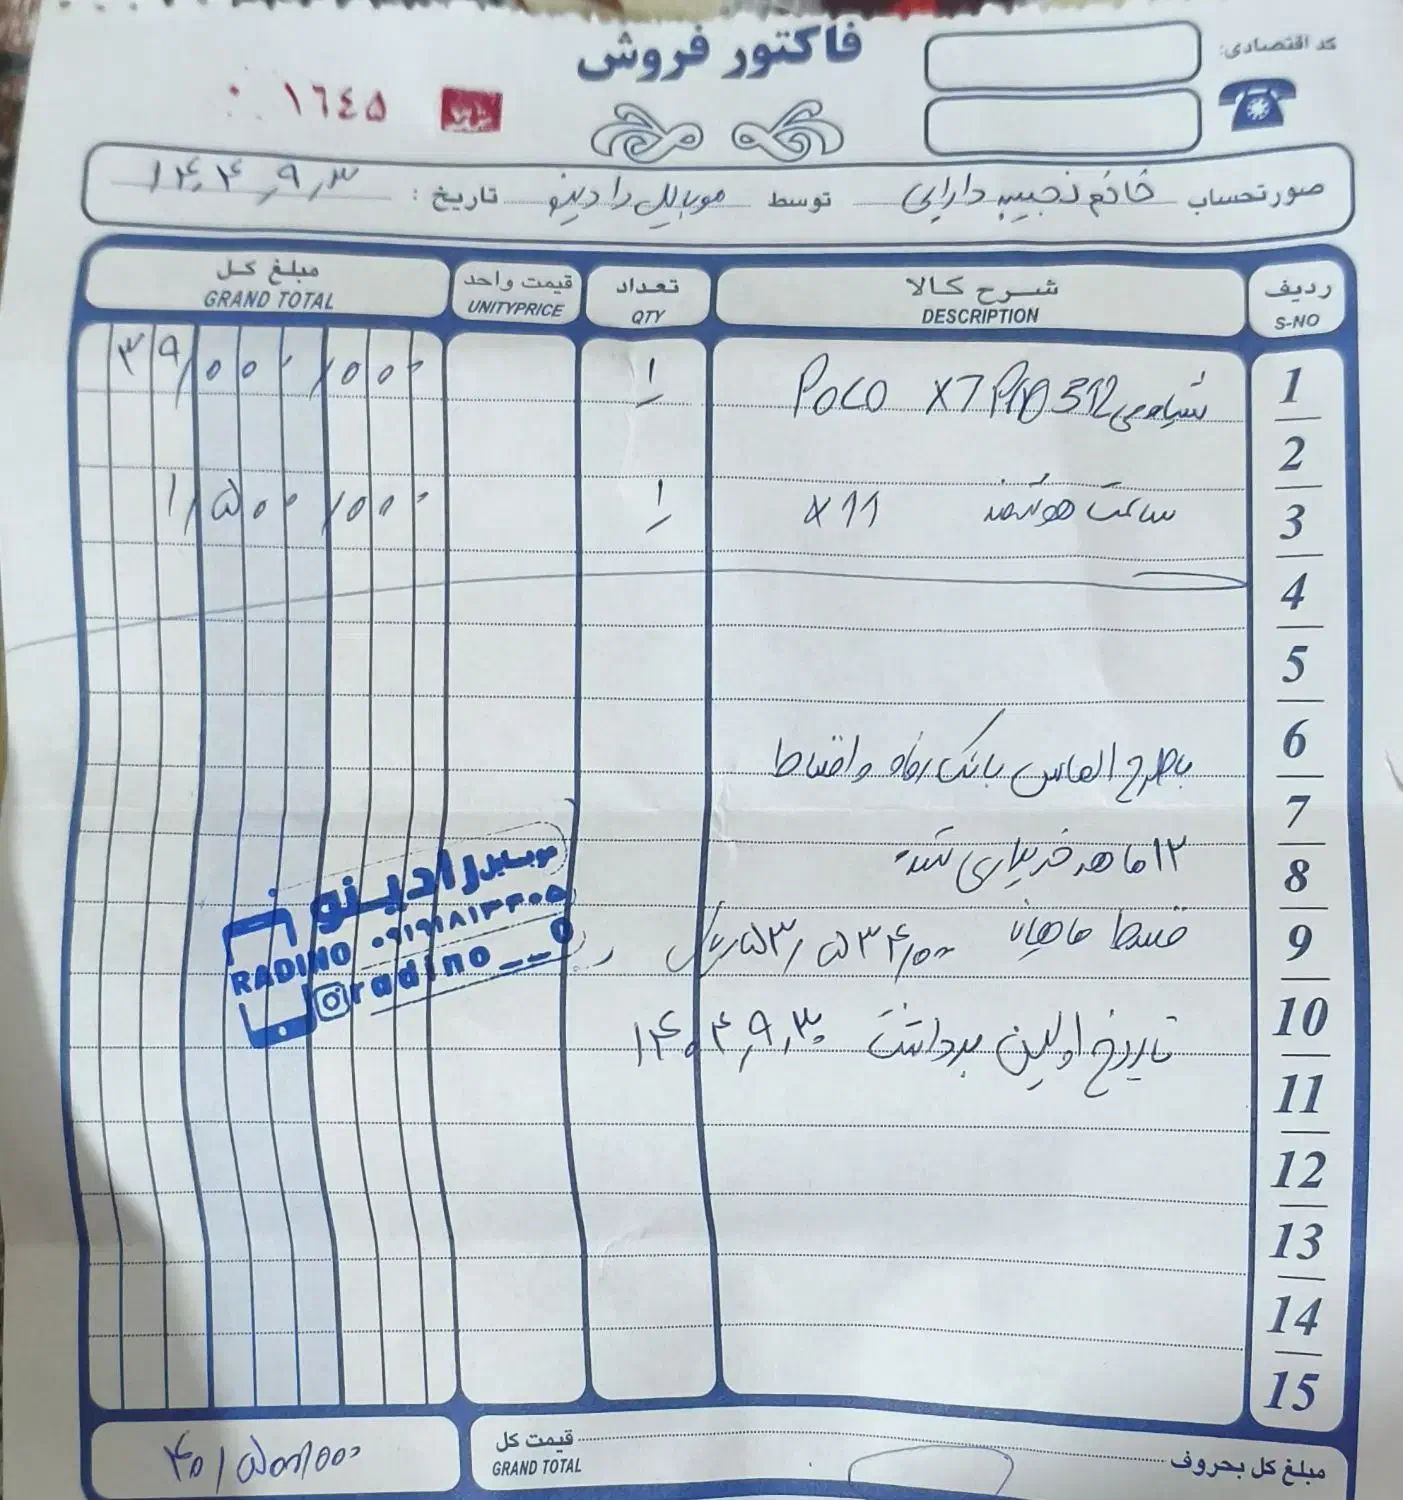 فاکتور فروش
کد اقتصادی:
۱۶۴۵
صورتحساب خانم نجیبه دارایی توسط موبایل رادینو تاریخ: ۱۴۰۴,۹,۳
ردیف شرح کالا تعداد قیمت واحد مبلغ کل
S-NO DESCRIPTION QTY UNITYPRICE GRAND TOTAL
1 شیاومی POCO X7 PRO 512 ۱ ۳۹/۰۰۰/۰۰۰
2
3 ساعت هوشمند X11 ۱ ۱/۵۰۰/۰۰۰
4
5
6
باطرح الماس بانک رفاه و اقساط
7
8 ۱۲ ماهه خریداری شد
9 قسط ماهیانه ۵۳/۵۳۴/۰۰۰ ریال
10 تاریخ اولین برداشت ۱۴۰۴,۹,۳۰
11
12
13
14
15
موبایل رادینو
RADINO
radino__0
مبلغ کل بحروف قیمت کل ۴۰/۵۰۰/۰۰۰
GRAND TOTAL